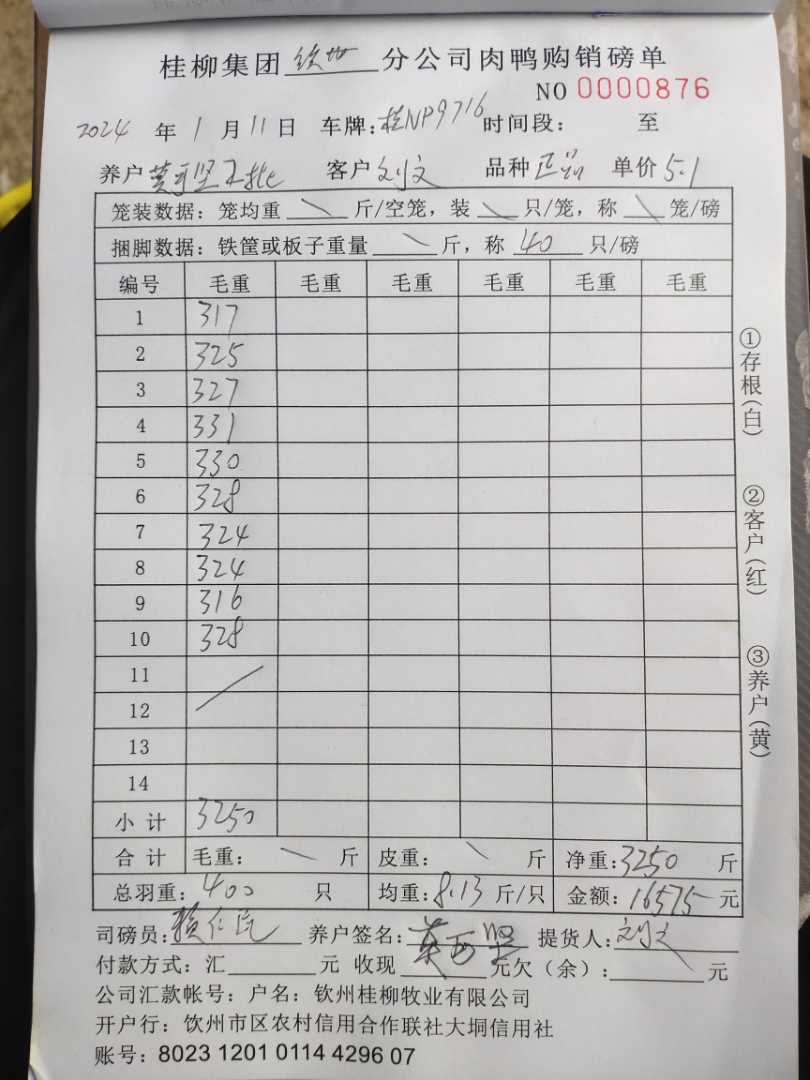 桂柳集团 钦州 分公司肉鸭购销磅单
NO 0000876
2024 年 1 月 11 日 车牌:桂NP9716 时间段: 至
养户 客户 刘文 品种 正品 单价 5.1
笼装数据: 笼均重 \ 斤/空笼, 装 \ 只/笼, 称 \ 笼/磅
捆脚数据: 铁筐或板子重量 \ 斤, 称 40 只/磅
编号 毛重 毛重 毛重 毛重 毛重 毛重
1 317
2 325
3 327
4 331
5 330
6 328
7 324
8 324
9 316
10 328
11
12
13
14
小 计 3250
合 计 毛重: \ 斤 皮重: \ 斤 净重: 3250 斤
总羽重: 400 只 均重: 8.13 斤/只 金额: 16575 元
司磅员: 养户签名: 提货人: 刘文
付款方式: 汇 元 收现 元欠(余): 元
公司汇款帐号: 户名: 钦州桂柳牧业有限公司
开户行: 饮州市区农村信用合作联社大垌信用社
账号: 8023 1201 0114 4296 07
①存根(白)
②客户(红)
③养户(黄)